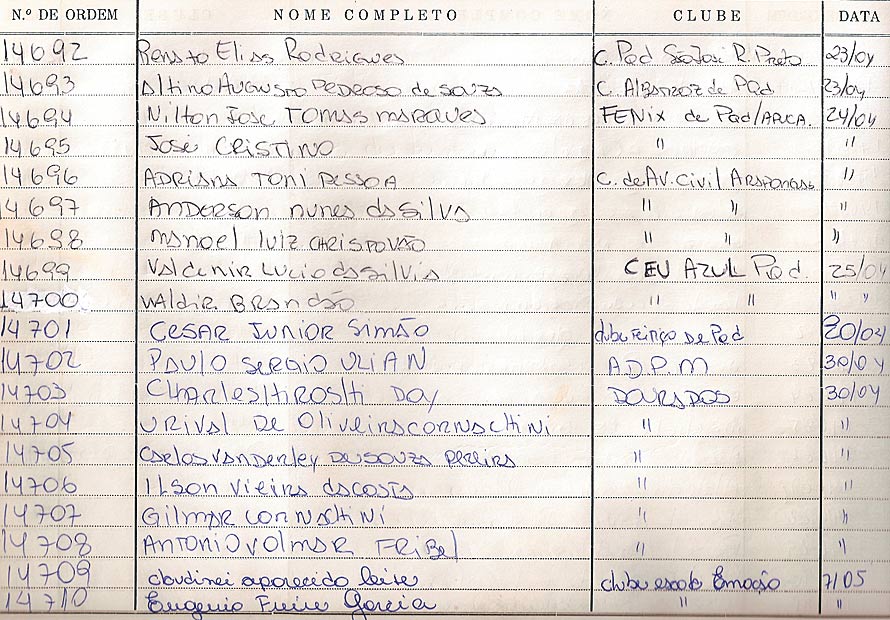 N.º DE ORDEM NOME COMPLETO CLUBE DATA
14692 Renato Elias Rodrigues C. Pqd São José R. Preto 23/04
14693 Altino Augusto Pedroso de Souza C. Albatroz de Pqd 23/04
14694 Nilton Jose Tomas marques FENIX de Pqd/ARCA. 24/04
14695 José CRISTINO " "
14696 ADRIANA TONI PESSOA C. de Av. Civil Arapongas "
14697 ANDERSON nunes da Silva " " "
14698 manoel luiz CHRISPOVÃO " " "
14699 Valdemir Lucio da silvia CEU AZUL Pqd. 25/04
14700 WALDIR BRANDÃO " " " "
14701 CESAR JUNIOR SIMÃO clube de Pqd 20/04
14702 PAULO SERGIO ULIAN A.D.P.M 30/04
14703 CHARLES HIROSHI DOY DOURADOS 30/04
14704 URIVAL DE Oliveira cornachini " "
14705 Carlos Vanderley de souza pereira " "
14706 Ilson Vieira da costa " "
14707 Gilmar cornachini " "
14708 ANTONIO VOLMAR FRIBEL " "
14709 claudinei aparecido leite clube escola Emoção 7/05
14710 Eugenio Freire Garcia " "